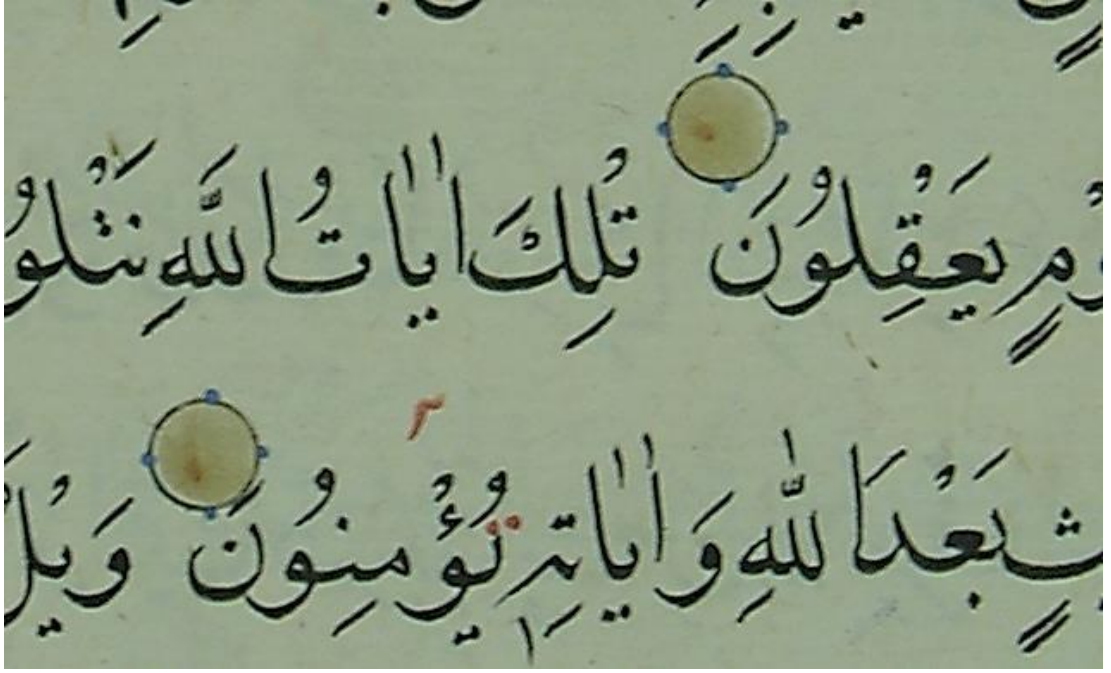 وْمٍ يَعْقِلُونَ تِلْكَ اٰيَاتُ اللّٰهِ نَتْلُو
ثٍ بَعْدَ اللّٰهِ وَاٰيَاتِهٖ يُؤْمِنُونَ وَيْل